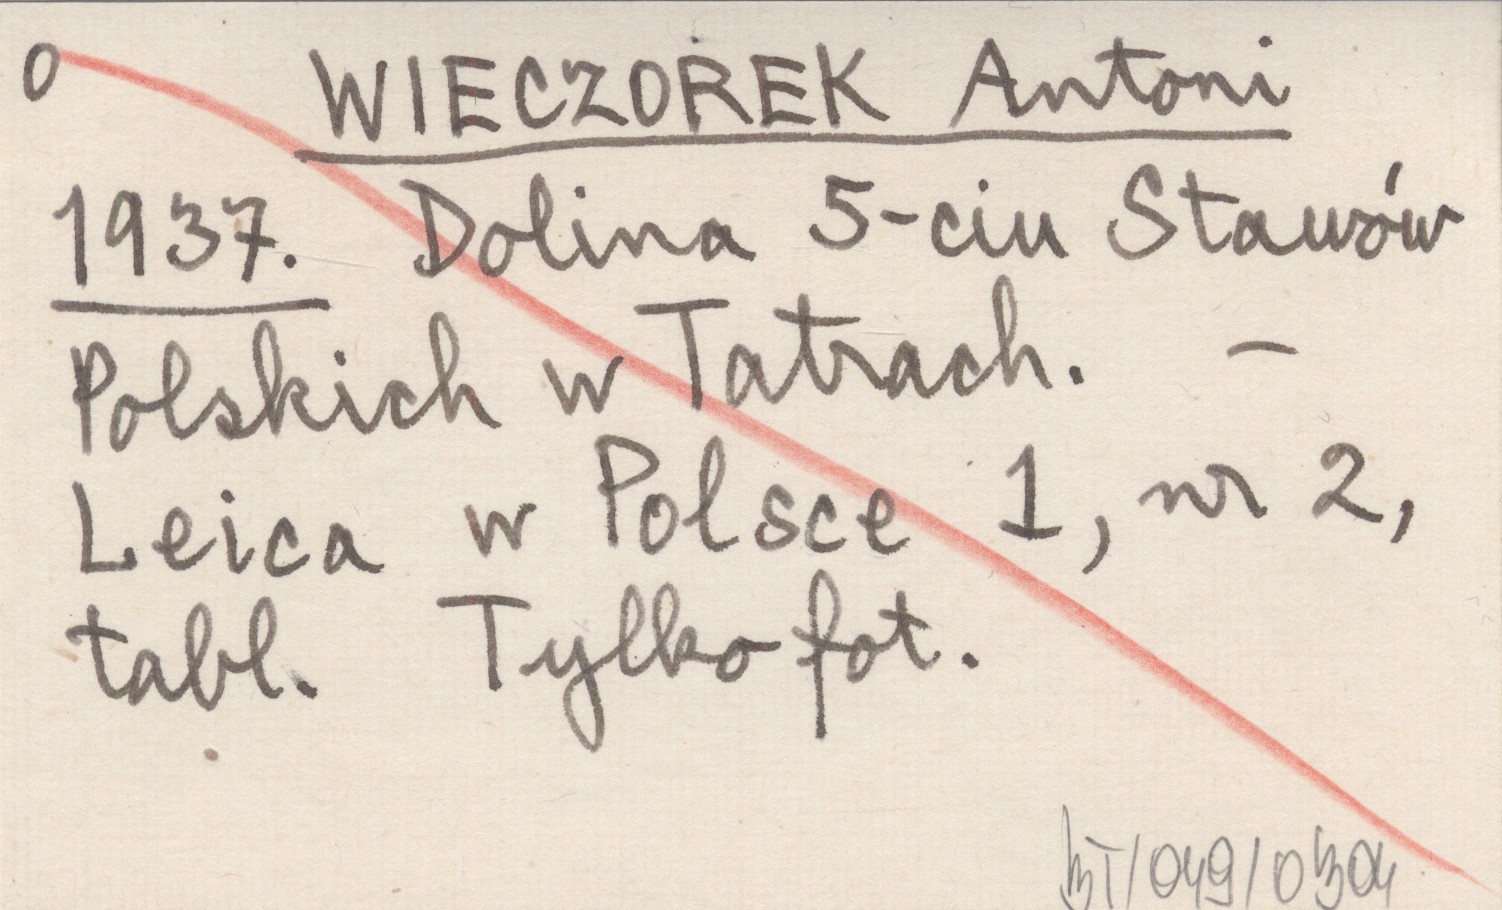 0 WIECZOREK Antoni
1937. Dolina 5-ciu Stawów
Polskich w Tatrach. –
Leica w Polsce 1, nr 2,
tabl. Tylko fot.
BT/049/0304